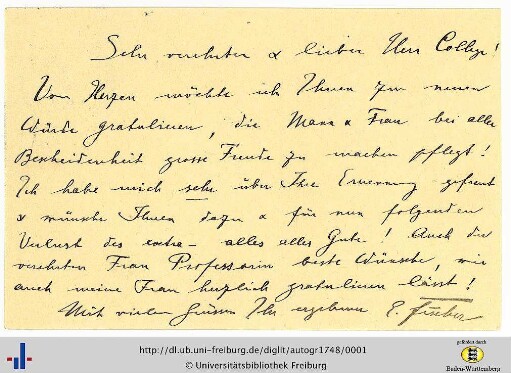 Sehr verehrter & lieber Herr College!
Von Herzen möchte ich Ihnen zur neuen
Würde gratulieren, die Mann & Frau bei aller
Bescheidenheit grosse Freude zu machen pflegt!
Ich habe mich sehr über Ihre Ernennung gefreut
& wünsche Ihnen dazu & für nun folgenden
Verlust des extra- alles alles Gute! Auch der
verehrten Frau Professorin beste Wünsche, wie
auch meine Frau herzlich gratulieren lässt!
Mit vielen Grüssen Ihr ergebener E. Fischer
http://dl.ub.uni-freiburg.de/diglit/autogr1748/0001
© Universitätsbibliothek Freiburg
gefördert durch
Baden-Württemberg